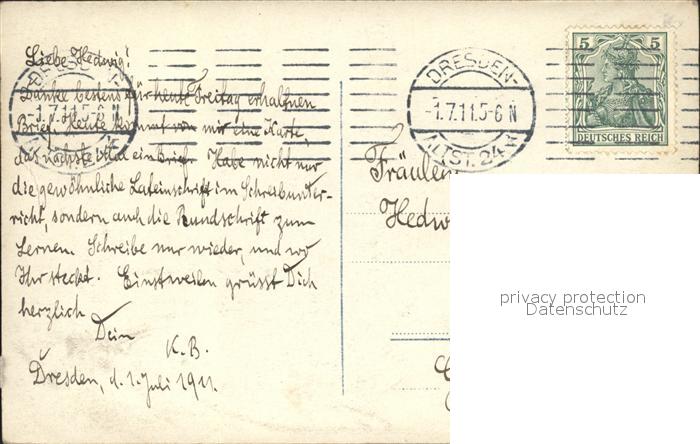 Liebe Hedwig!
Danke bestens für heute Freitag erhaltnen
Brief. Heute kommt von mir eine Karte,
das nächste Mal ein Brief. Habe nicht nur
die gewöhnliche Lateinschrift im Schreibunter-
richt, sondern auch die Rundschrift zum
Lernen. Schreibe nur wieder, und wo
Ihr steckt. Einstweilen grüsst Dich
herzlich
Dein
K. B.
Dresden, d. 1. Juli 1911.
DRESDEN-
-1.7.11.5-6 N
ALTST. 24
DRESDEN-
-1.7.11.5-6 N
5 5
DEUTSCHES REICH
Fräulein
Hedw
privacy protection
Datenschutz